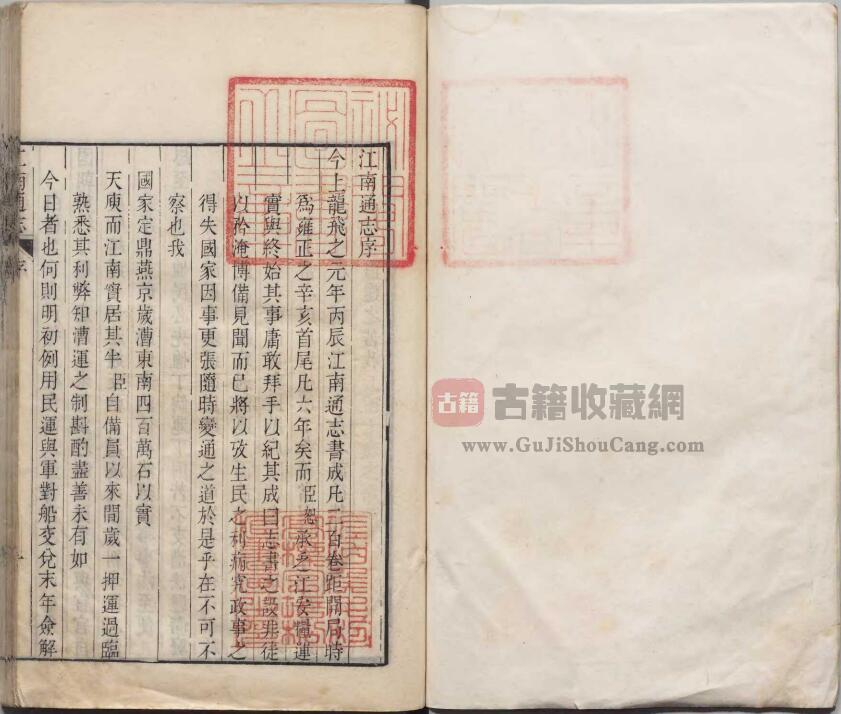 江南通志序
今上龍飛之元年丙辰江南通志書成凡二百卷距開局時
爲雍正之辛亥首尾凡六年矣而臣恕承乏江安糧運
實與終始其事庸敢拜手以紀其成曰志書之設非徒
以矜淹博備見聞而已將以攷生民之利病究政事之
得失國家因事更張隨時變通之道於是乎在不可不
察也我
國家定鼎燕京歲漕東南四百萬石以實
天庾而江南實居其半臣自備員以來間歲一押運過臨
熟悉其利弊知漕運之制斟酌盡善未有如
今日者也何則明初例用民運與軍對船交兌末年僉解
江南通志
序
一
古籍
古籍收藏網
www.GuJiShouCang.com